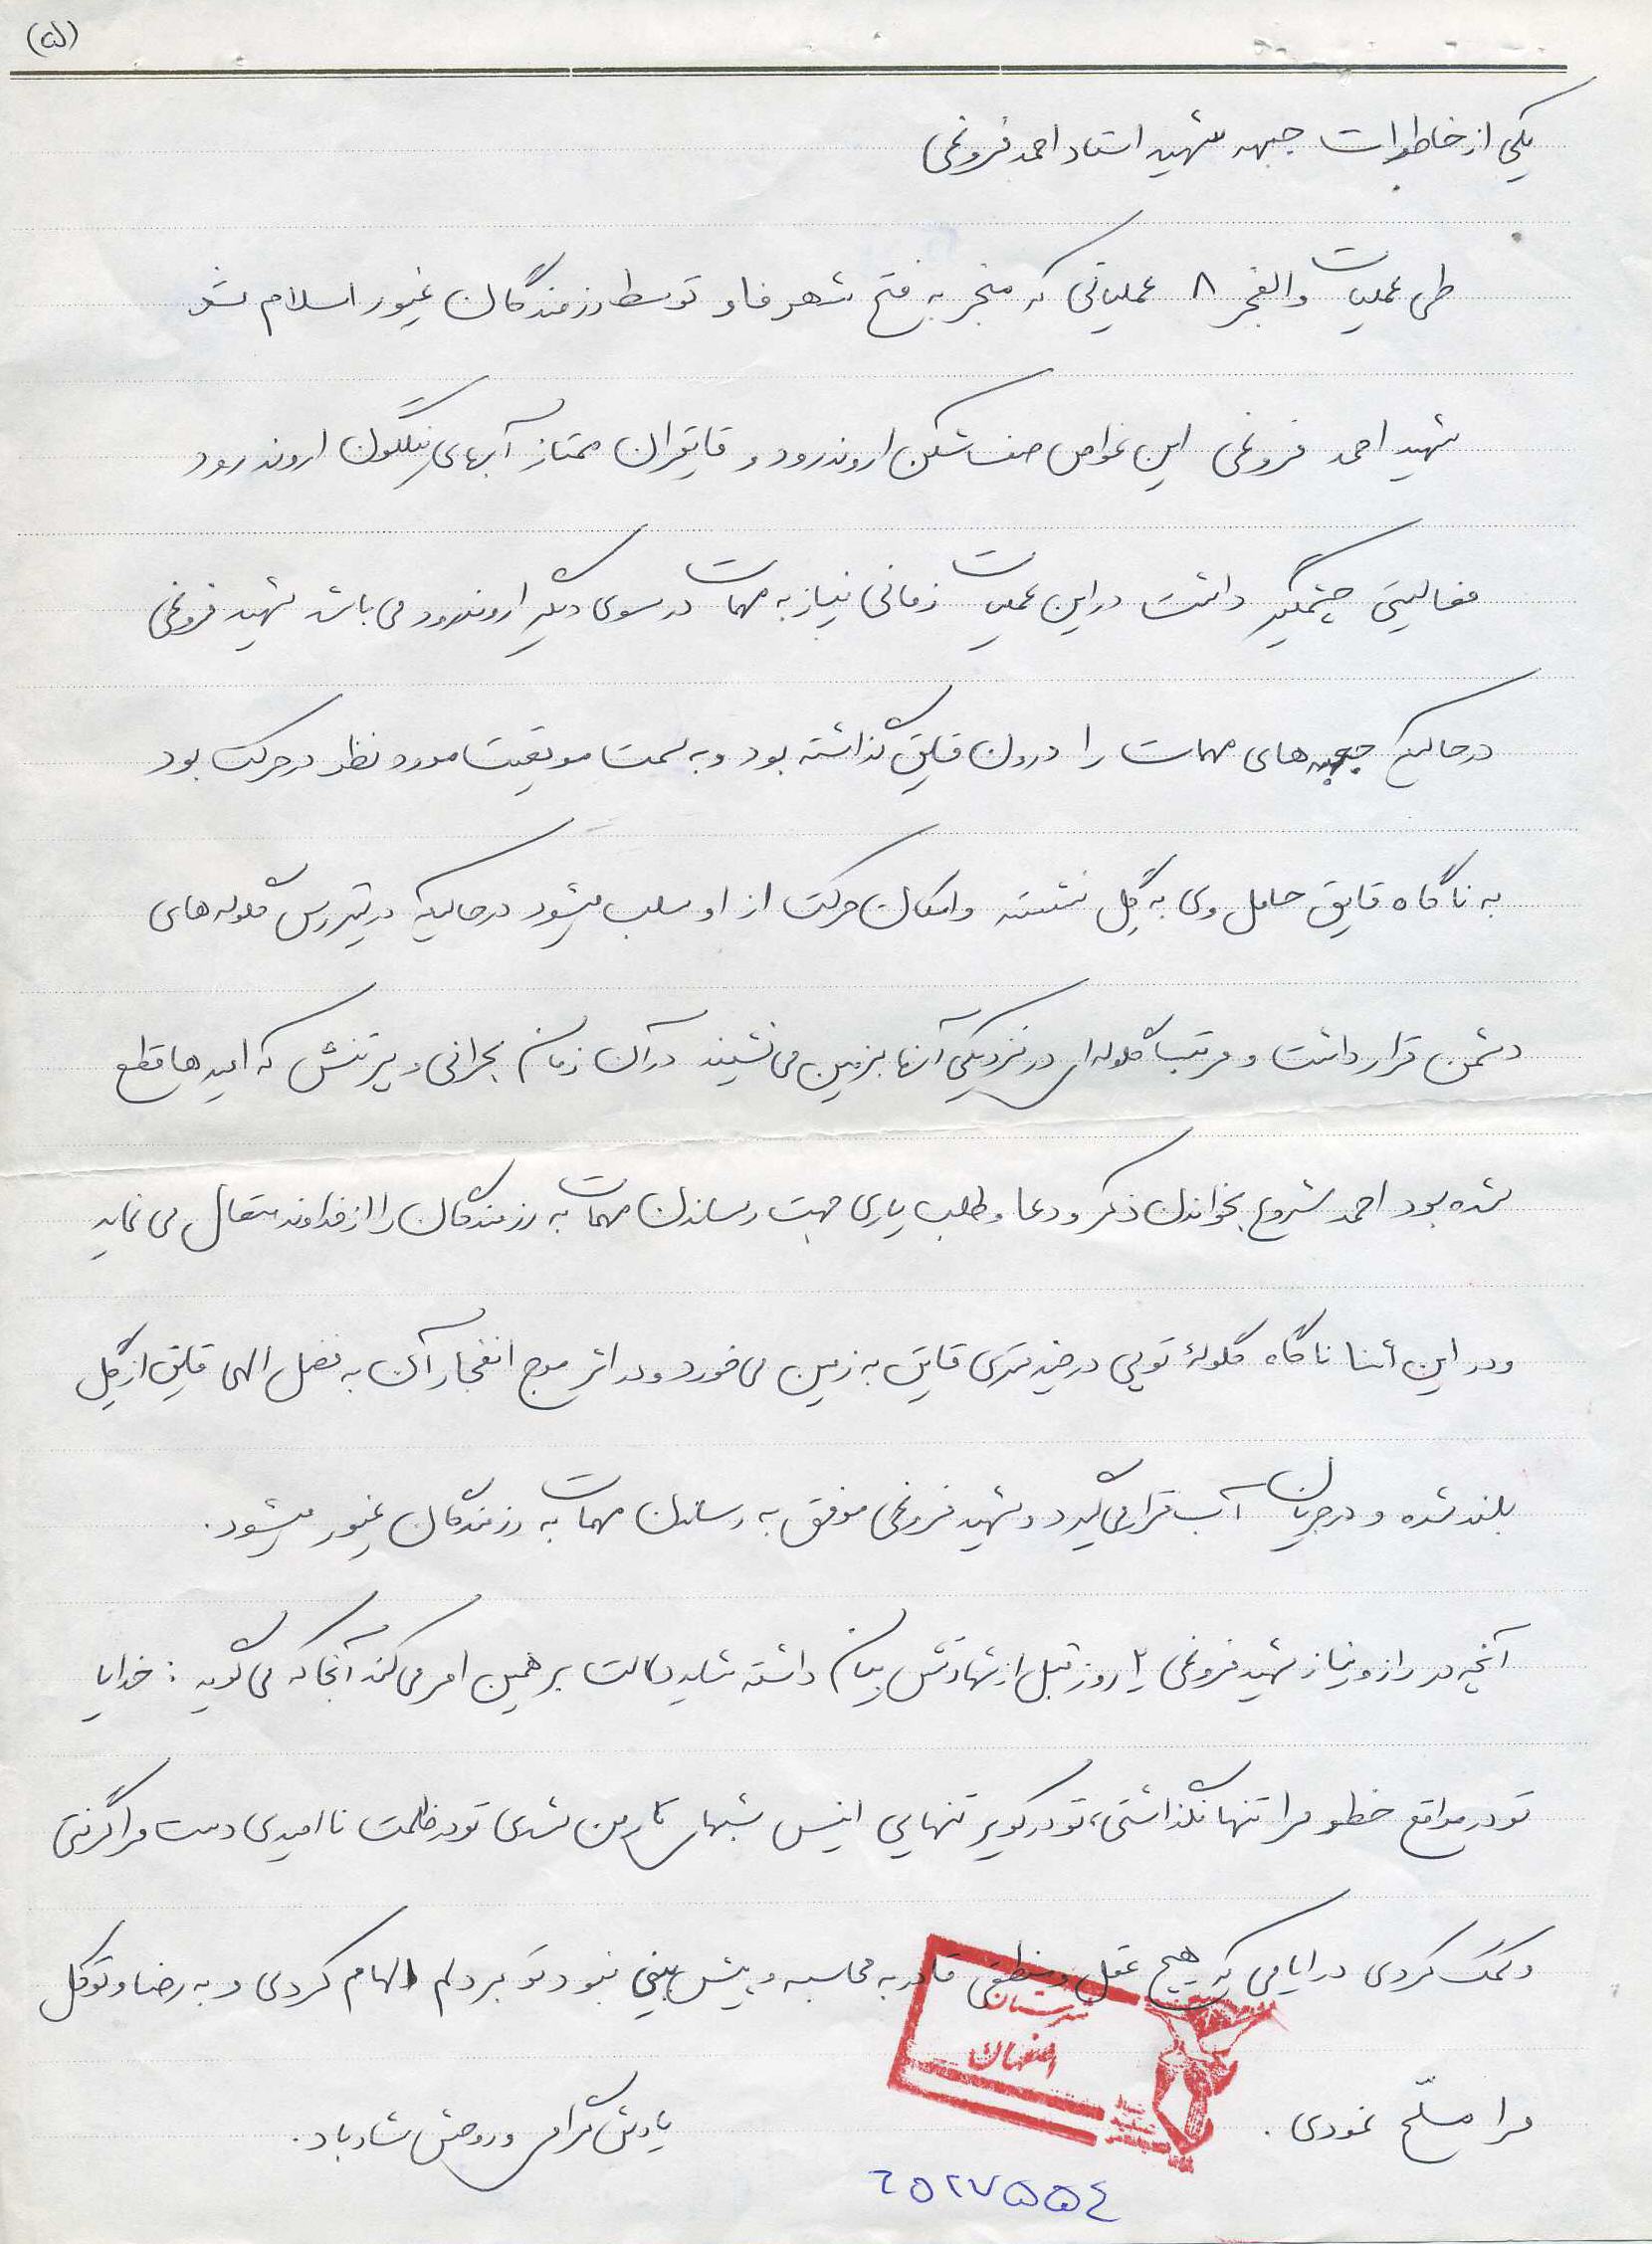 (۵)
یکی از خاطرات جبهه شهید استاد احمد فروغی
طی عملیات والفجر ۸ عملیاتی که منجر به فتح شهر فاو توسط رزمندگان غیور اسلام شد
شهید احمد فروغی این غواص صف شکن اروندرود و قایقران ممتاز آبهای نیلگون اروندرود
فعالیتی چشمگیر داشت در این عملیات زمانی نیاز به مهمات در سوی دیگر اروندرود می باشد شهید فروغی
درحالیکه جعبه های مهمات را درون قایق گذاشته بود و به سمت موقعیت مورد نظر در حرکت بود
به ناگاه قایق حامل وی به گِل نشسته و امکان حرکت از او سلب میشود در حالیکه در تیررس گلوله های
دشمن قرار داشت و مرتب گلوله ای در نزدیکی آنها بزمین می نشیند در آن زمان بحرانی و پرتنش که امیدها قطع
شده بود احمد شروع بخواندن ذکر و دعا و طلب یاری جهت رساندن مهمات به رزمندگان را از خداوند متعال می نماید
و در این أثنا ناگاه گلولۀ توپی در چند متری قایق به زمین می خورد و در اثر موج انفجار آن به فضل الهی قایق از گِل
بلند شده و در جریان آب قرار می گیرد و شهید فروغی موفق به رساندن مهمات به رزمندگان غیور میشود.
آنچه در راز و نیاز شهید فروغی ۲ روز قبل از شهادتش بیان داشته شاید دلالت بر همین امر می کند آنجا که می گوید : خدایا
تو در مواقع خطر مرا تنها نگذاشتی، تو در کویر تنهایی انیس شبهای تار من شدی تو در ظلمت ناامیدی دست مرا گرفتی
و کمک کردی در ایامی که هیچ عقل و منطقی قادر به محاسبه و پیش بینی نبود تو بر دلم الهام کردی و به رضا و توکل
مرا مسلّح نمودی .
یادش گرامی و روحش شاد باد.
اصفهان
۶۵۲۷۵۵۴